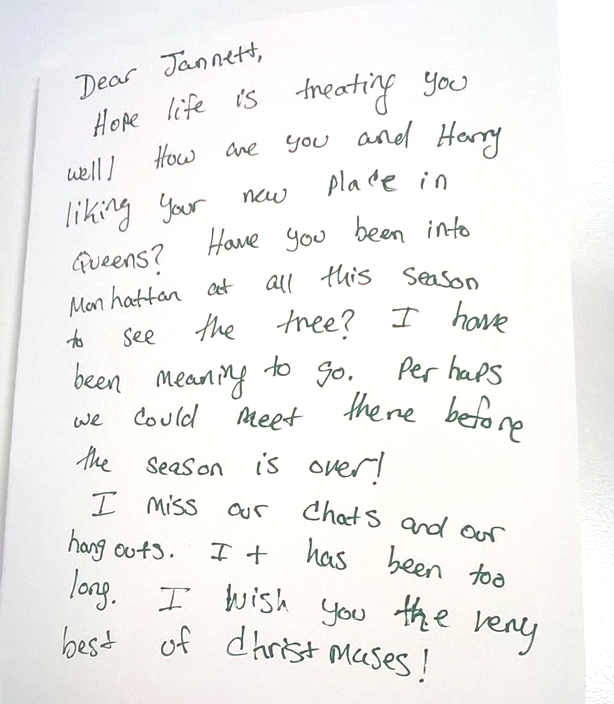 Dear Jannett,
Hope life is treating you
well! How are you and Harry
liking your new place in
Queens? Have you been into
Manhattan at all this season
to see the tree? I have
been meaning to go. Perhaps
we could meet there before
the season is over!
I miss our chats and our
hang outs. It has been too
long. I wish you the very
best of Christmases!